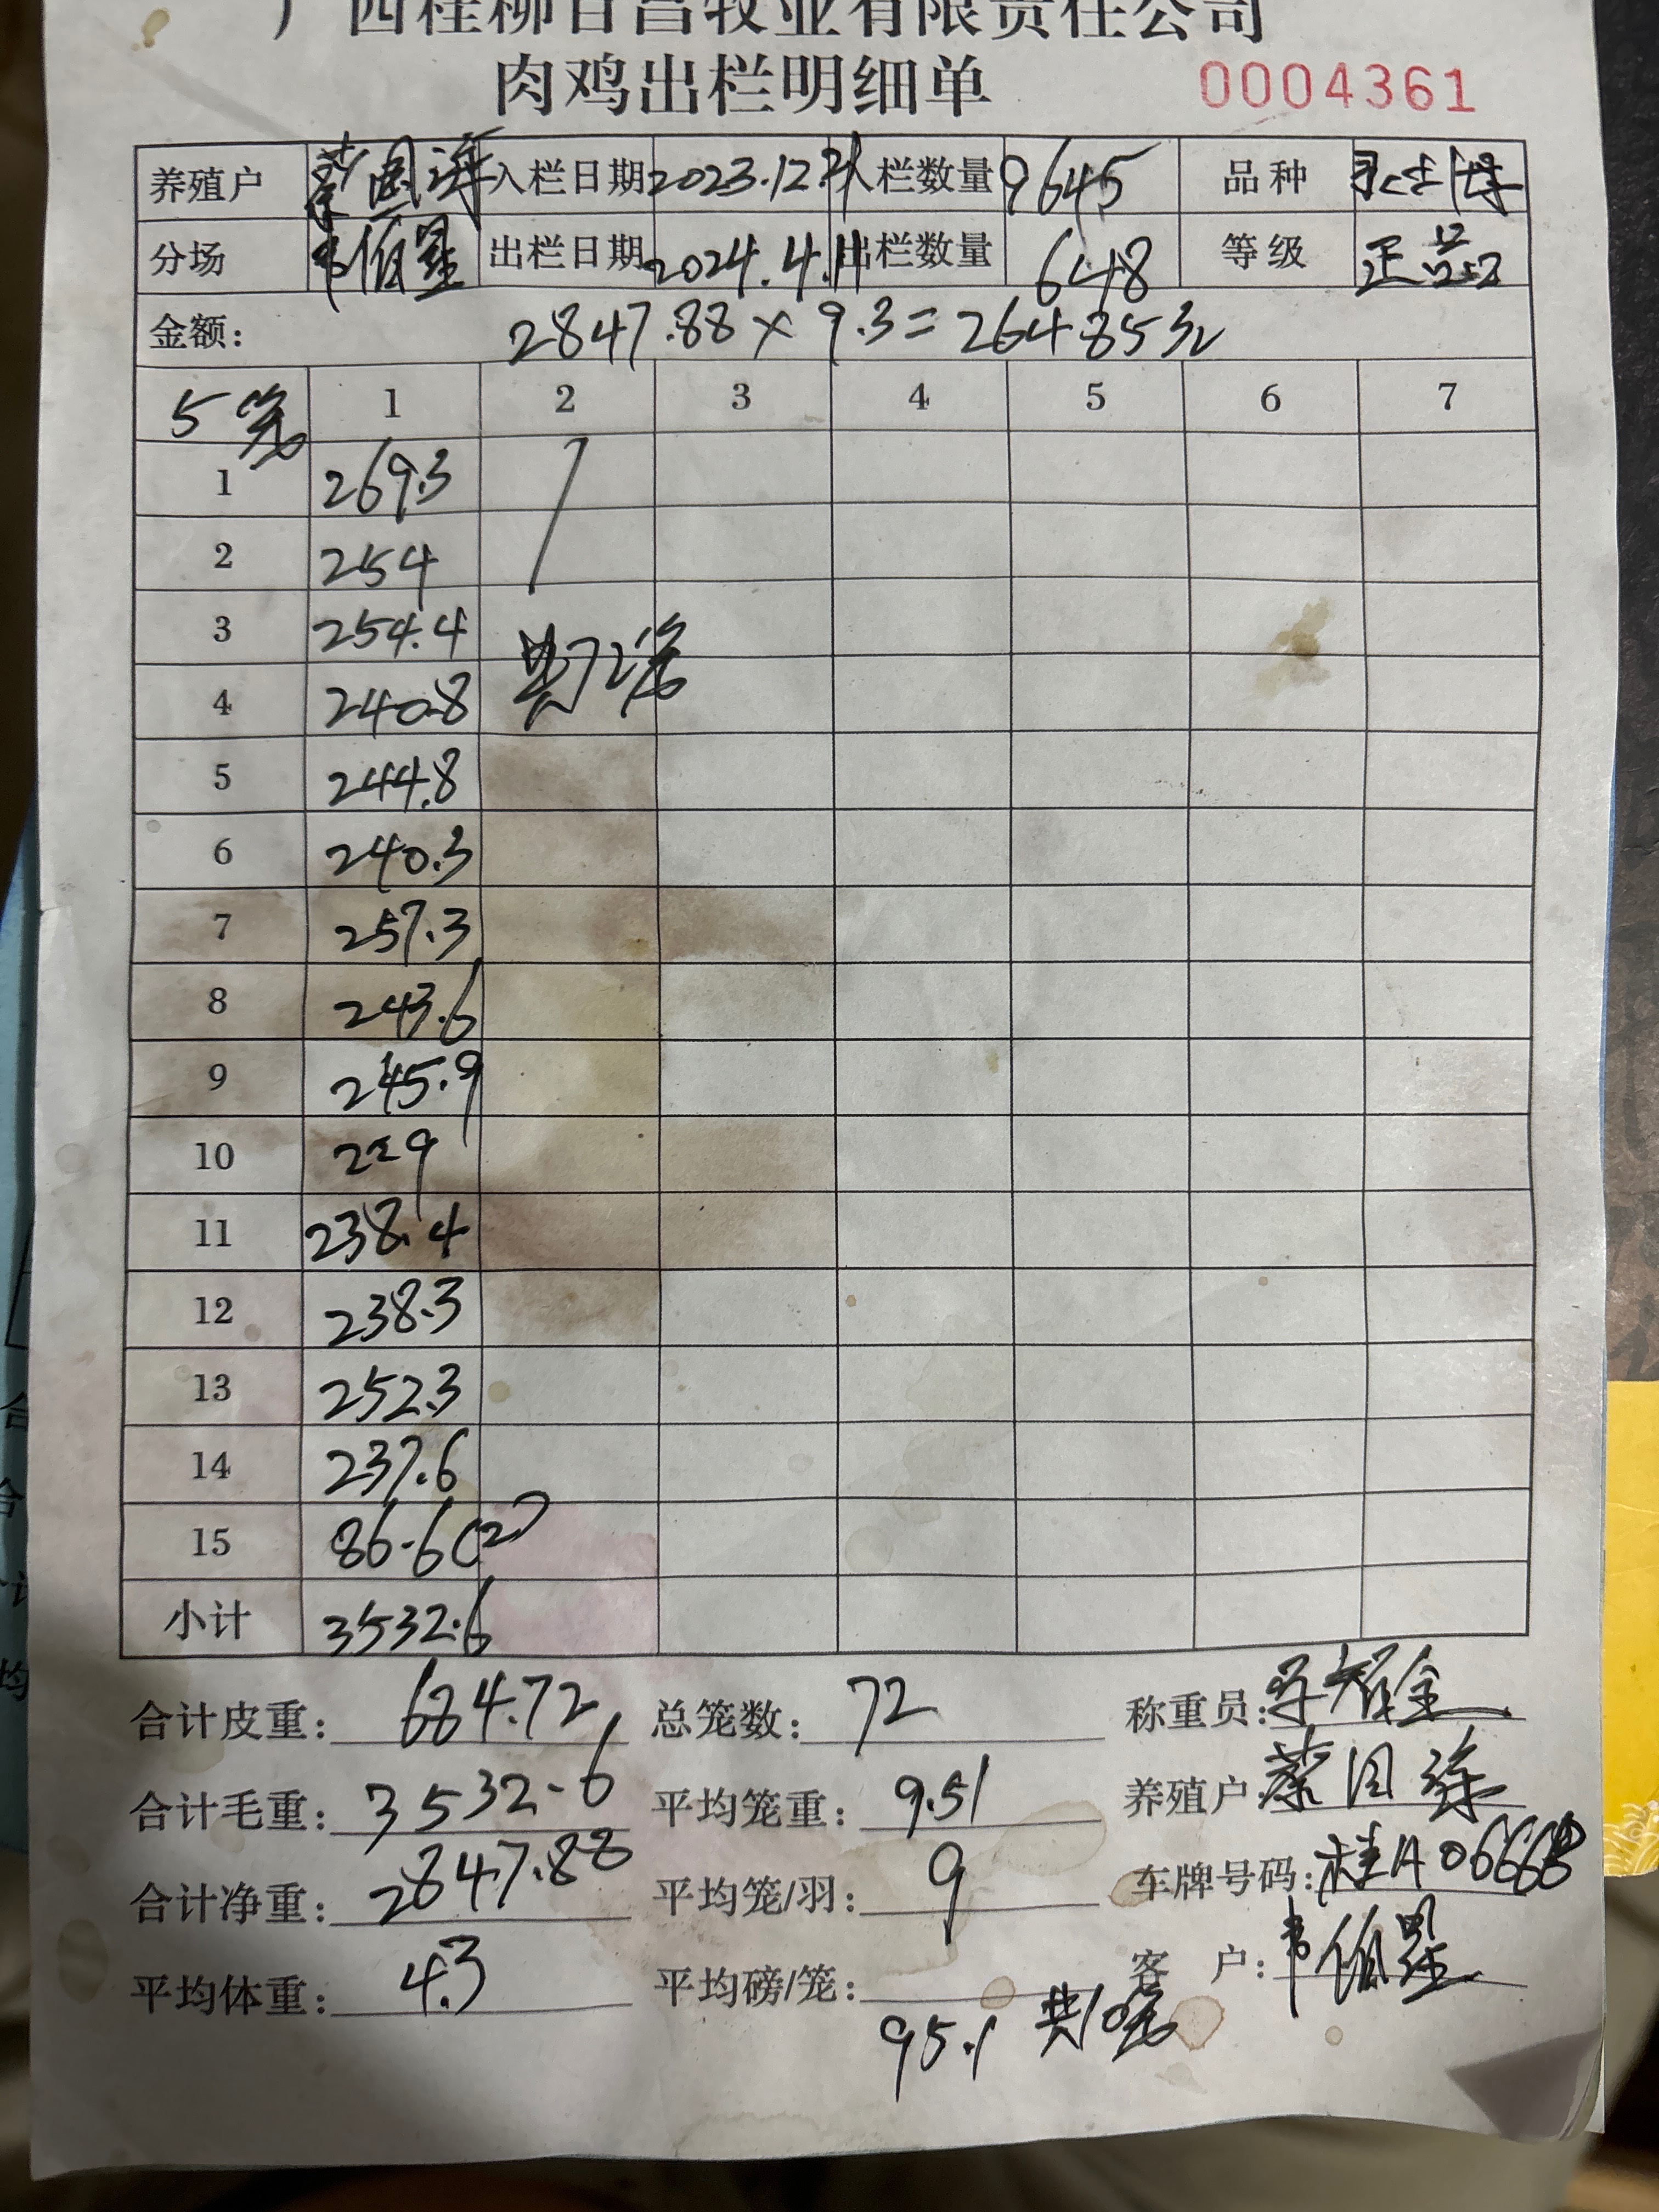 广西桂柳百昌牧业有限责任公司
肉鸡出栏明细单 0004361
养殖户 入栏日期 2023.12.21 入栏数量 9645 品种
分场 韦伯星 出栏日期 2024.4.11 出栏数量 648 等级 正品
金额: 2847.88×9.3=26485元
5笼 1 2 3 4 5 6 7
1 269.3
2 254
3 254.4 共72笼
4 240.8
5 244.8
6 240.3
7 257.3
8 243.6
9 245.9
10 229
11 238.4
12 238.3
13 252.3
14 237.6
15 86.6(2)
小计 3532.6
合计皮重: 684.72 总笼数: 72 称重员:
合计毛重: 3532.6 平均笼重: 9.51 养殖户:
合计净重: 2847.88 平均笼/羽: 9 车牌号码: 桂A06668
平均体重: 4.3 平均磅/笼: 客 户: 韦伯星
95.1 共10笼